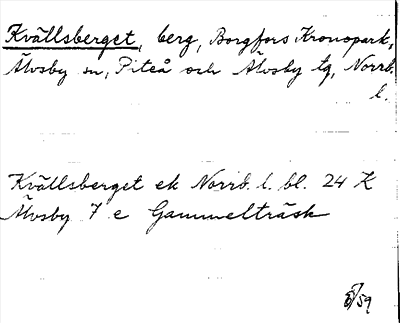 Kvällsberget, berg, Borgfors Kronopark,
Älvsby sn, Piteå och Älvsby tg, Norrb.
l.
Kvällsberget ek Norrb. l. bl. 24 K
Älvsby 7 e Gammelträsk
/59